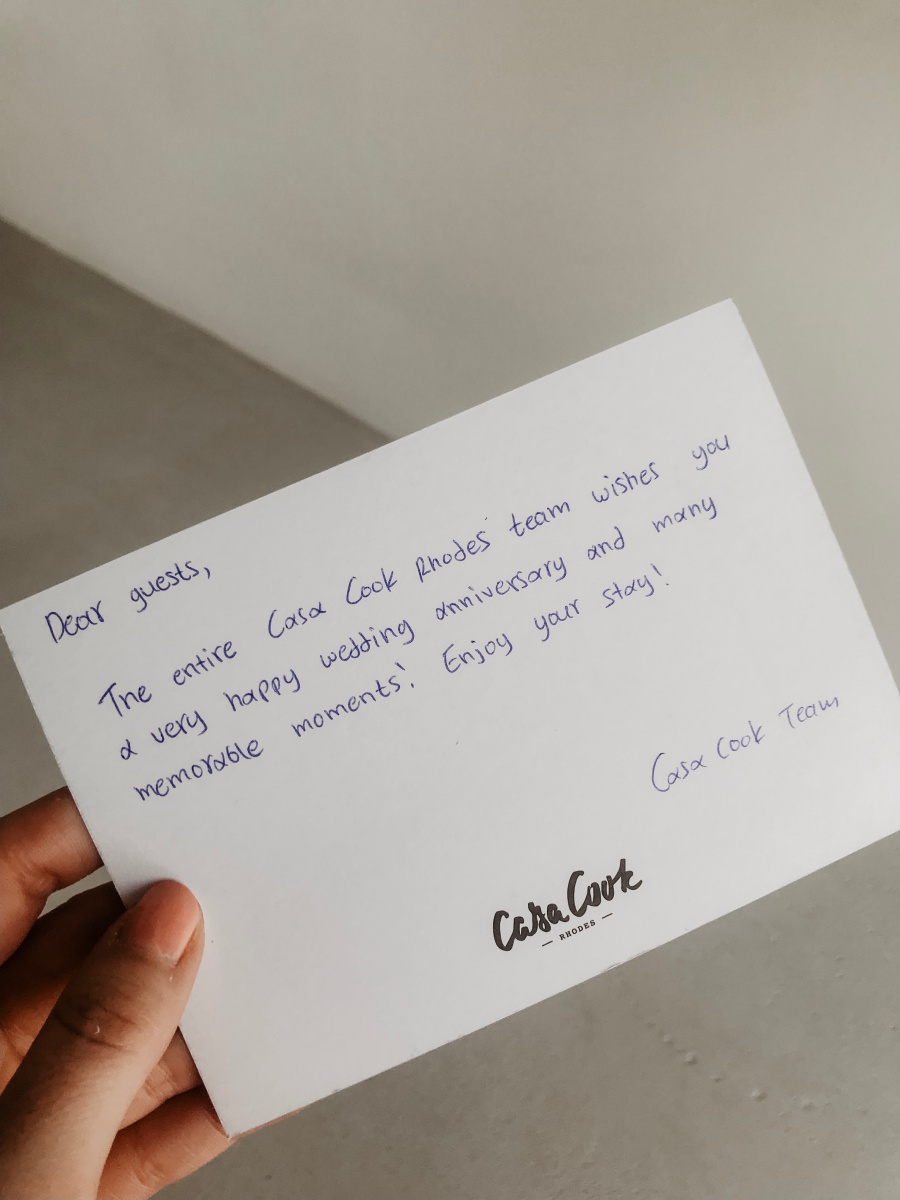 Dear guests,
The entire Casa Cook Rhodes team wishes you
a very happy wedding anniversary and many
memorable moments! Enjoy your stay!
Casa Cook Team
Casa Cook
— RHODES —